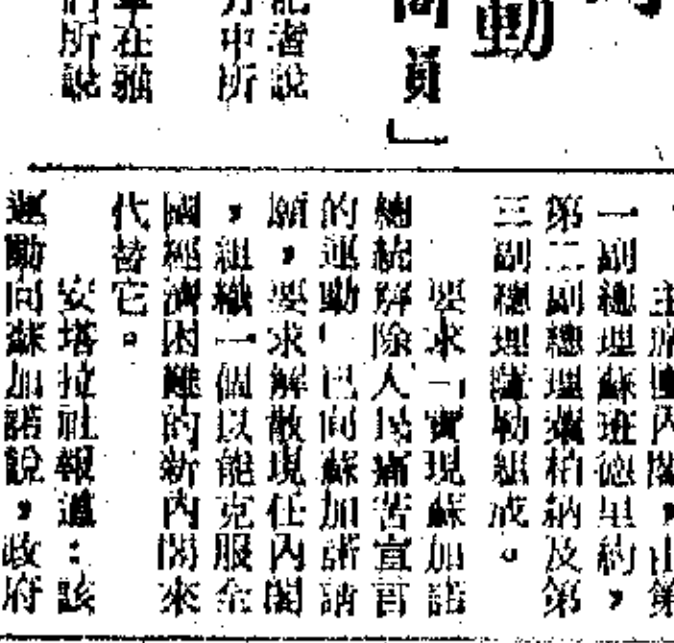 動
員」
記者說
中所
在雅
所說
主席團內閣，由第
一副總理蘇班德里約，
第二副總理萊柏納及第
三副總理薩勒組成。
要求「實現蘇加諾
總統解除人民痛苦宣言
的運動」已向蘇加諾請
願，要求解散現任內閣
，組織一個以能克服全
國經濟困難的新內閣來
代替它。
安塔拉社報道：該
運動向蘇加諾說，政府